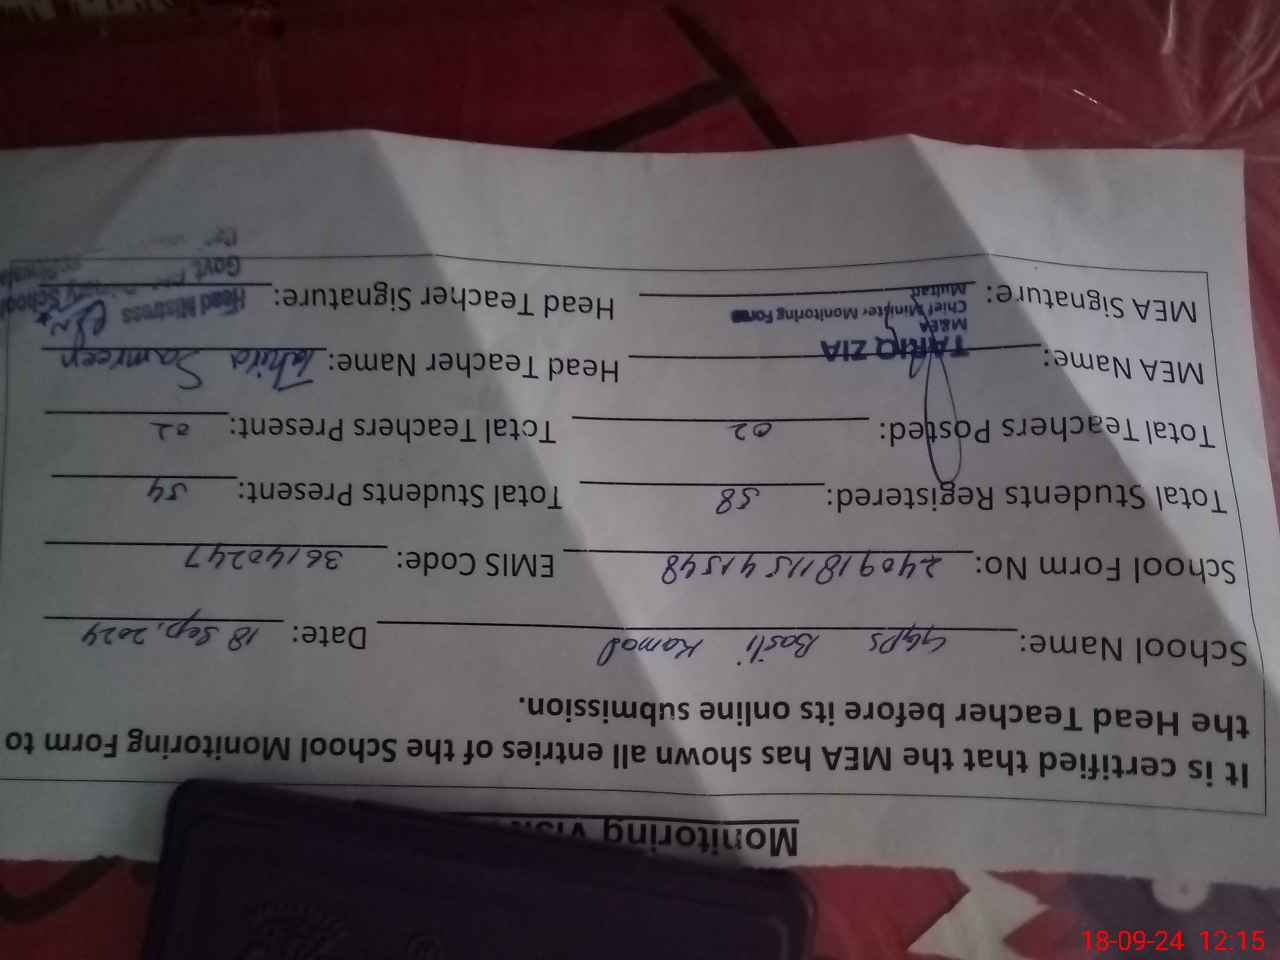 Monitoring Visit
It is certified that the MEA has shown all entries of the School Monitoring Form to
the Head Teacher before its online submission.
School Name: GGPS Basti Kamal Date: 18 Sep, 2024
School Form No: 24091811541548 EMIS Code: 36140247
Total Students Registered: 58 Total Students Present: 54
Total Teachers Posted: 02 Total Teachers Present: 02
MEA Name: TARIQ ZIA Head Teacher Name: Tahira Samreen
M&EA
Chief Minister Monitoring Force
Multan
MEA Signature: Head Teacher Signature:
Head Mistress
Govt School
18-09-24 12:15